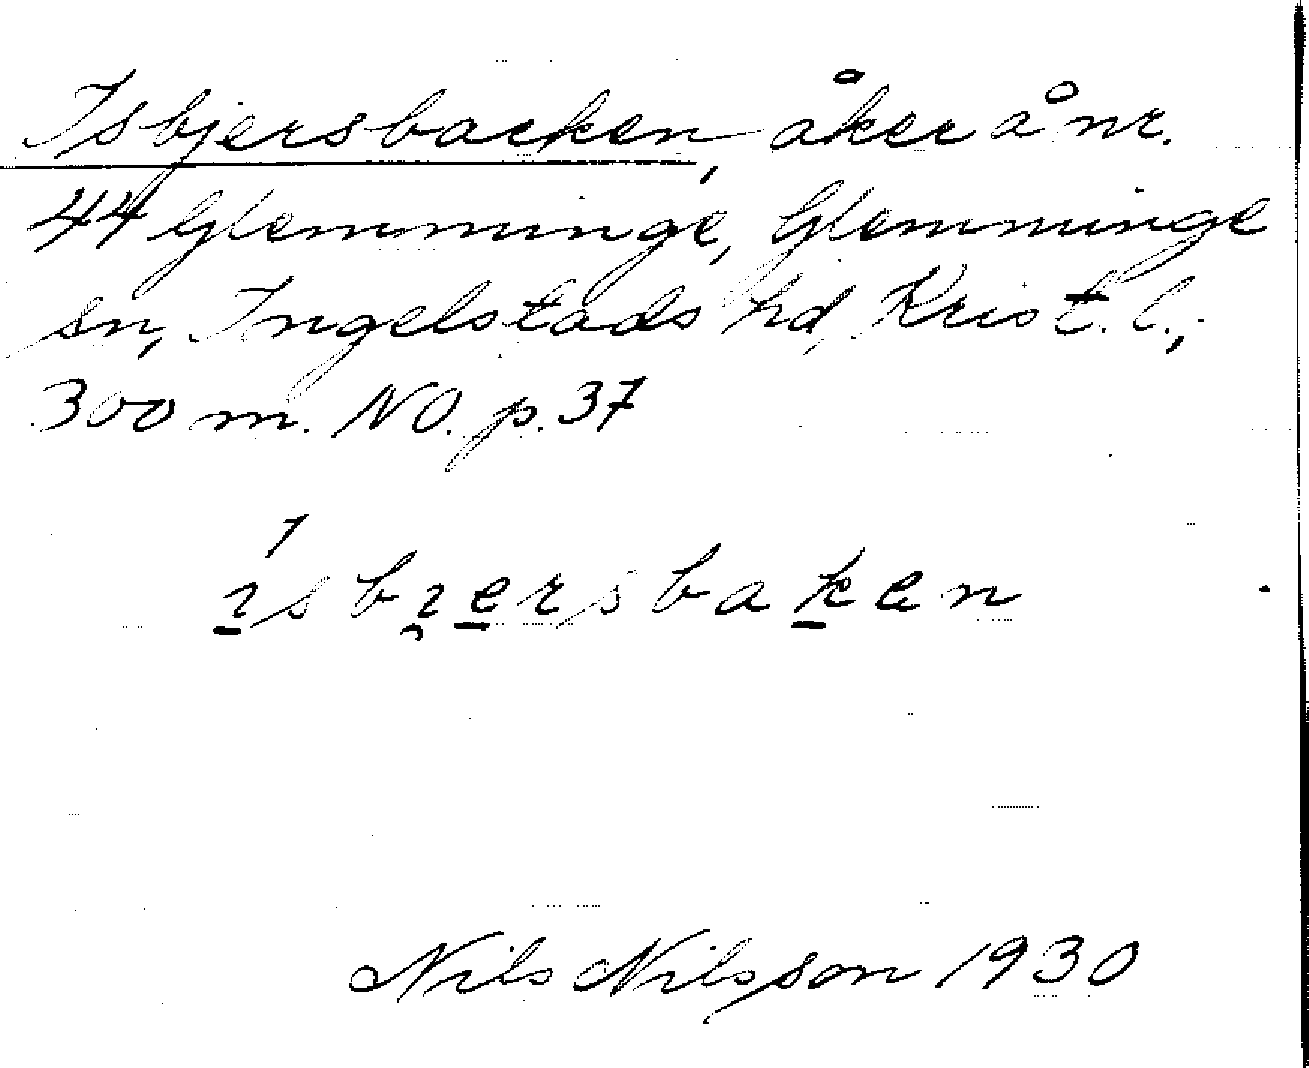 Isbjersbacken, åker å nr.
44 Glemminge, Glemminge
sn, Ingelstads hd, Krist. l.,
300 m. NO. p. 37
ı̱́sbı̯e̱rsbaḵen
Nils Nilsson 1930